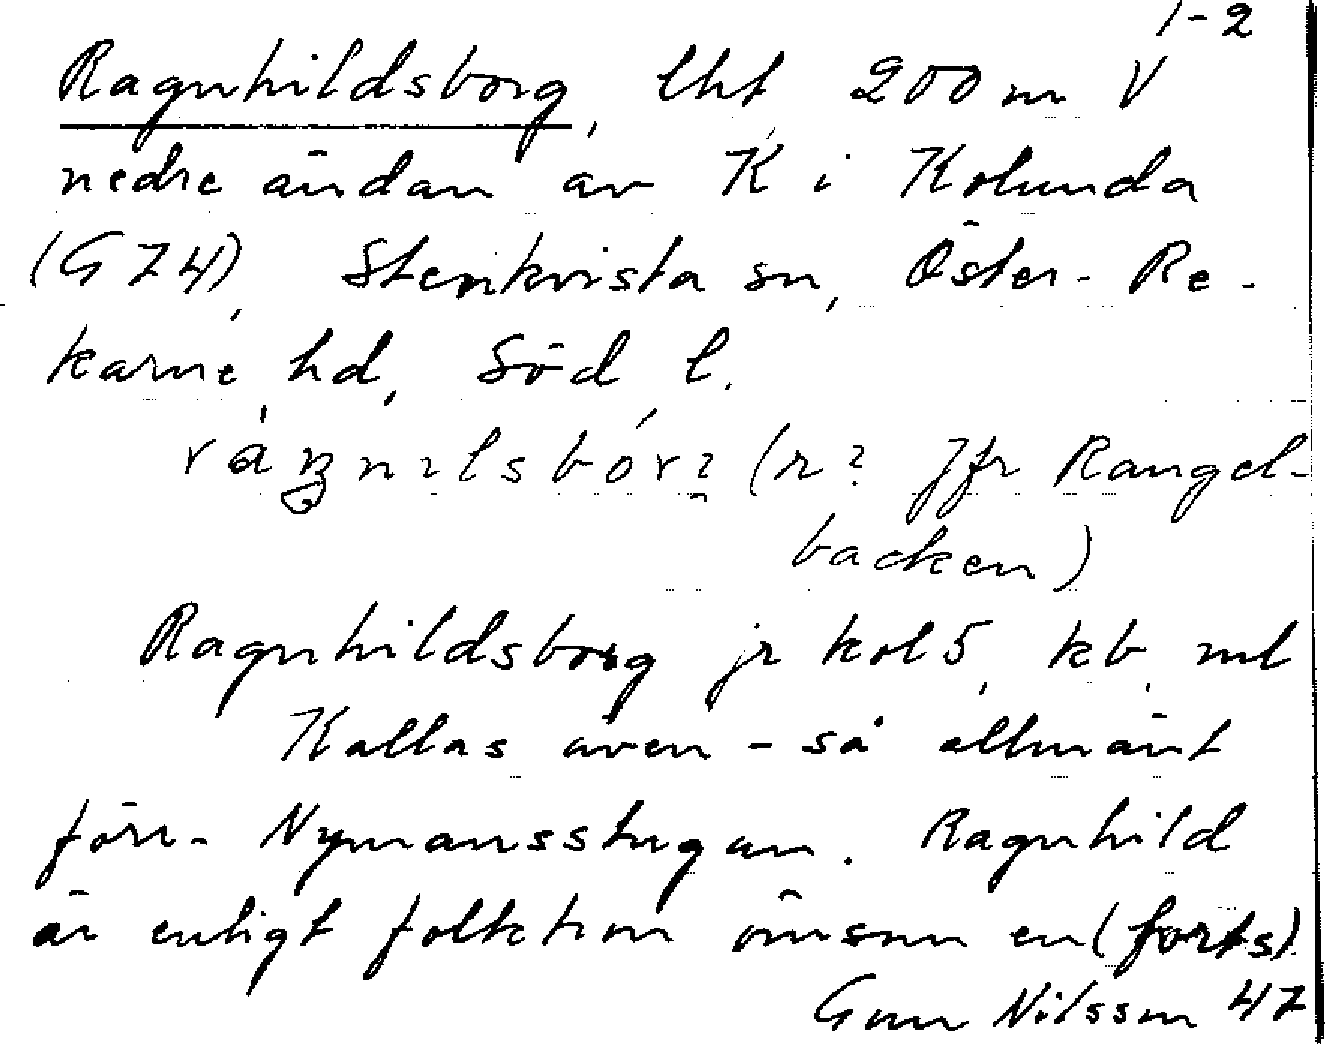 1-2
Ragnhildsborg, lht 200 m V
nedre ändan av K i Kolunda
(G 74), Stenkvista sn, Öster-Re-
karne hd, Söd l.
(r? Jfr Rangel-
backen)
Ragnhildsborg jr kol 5, kb, ml
Kallas även - så allmänt
förr - Nymansstugan. Ragnhild
är enligt folktronömsom en (forts)
Gun Nilsson 47